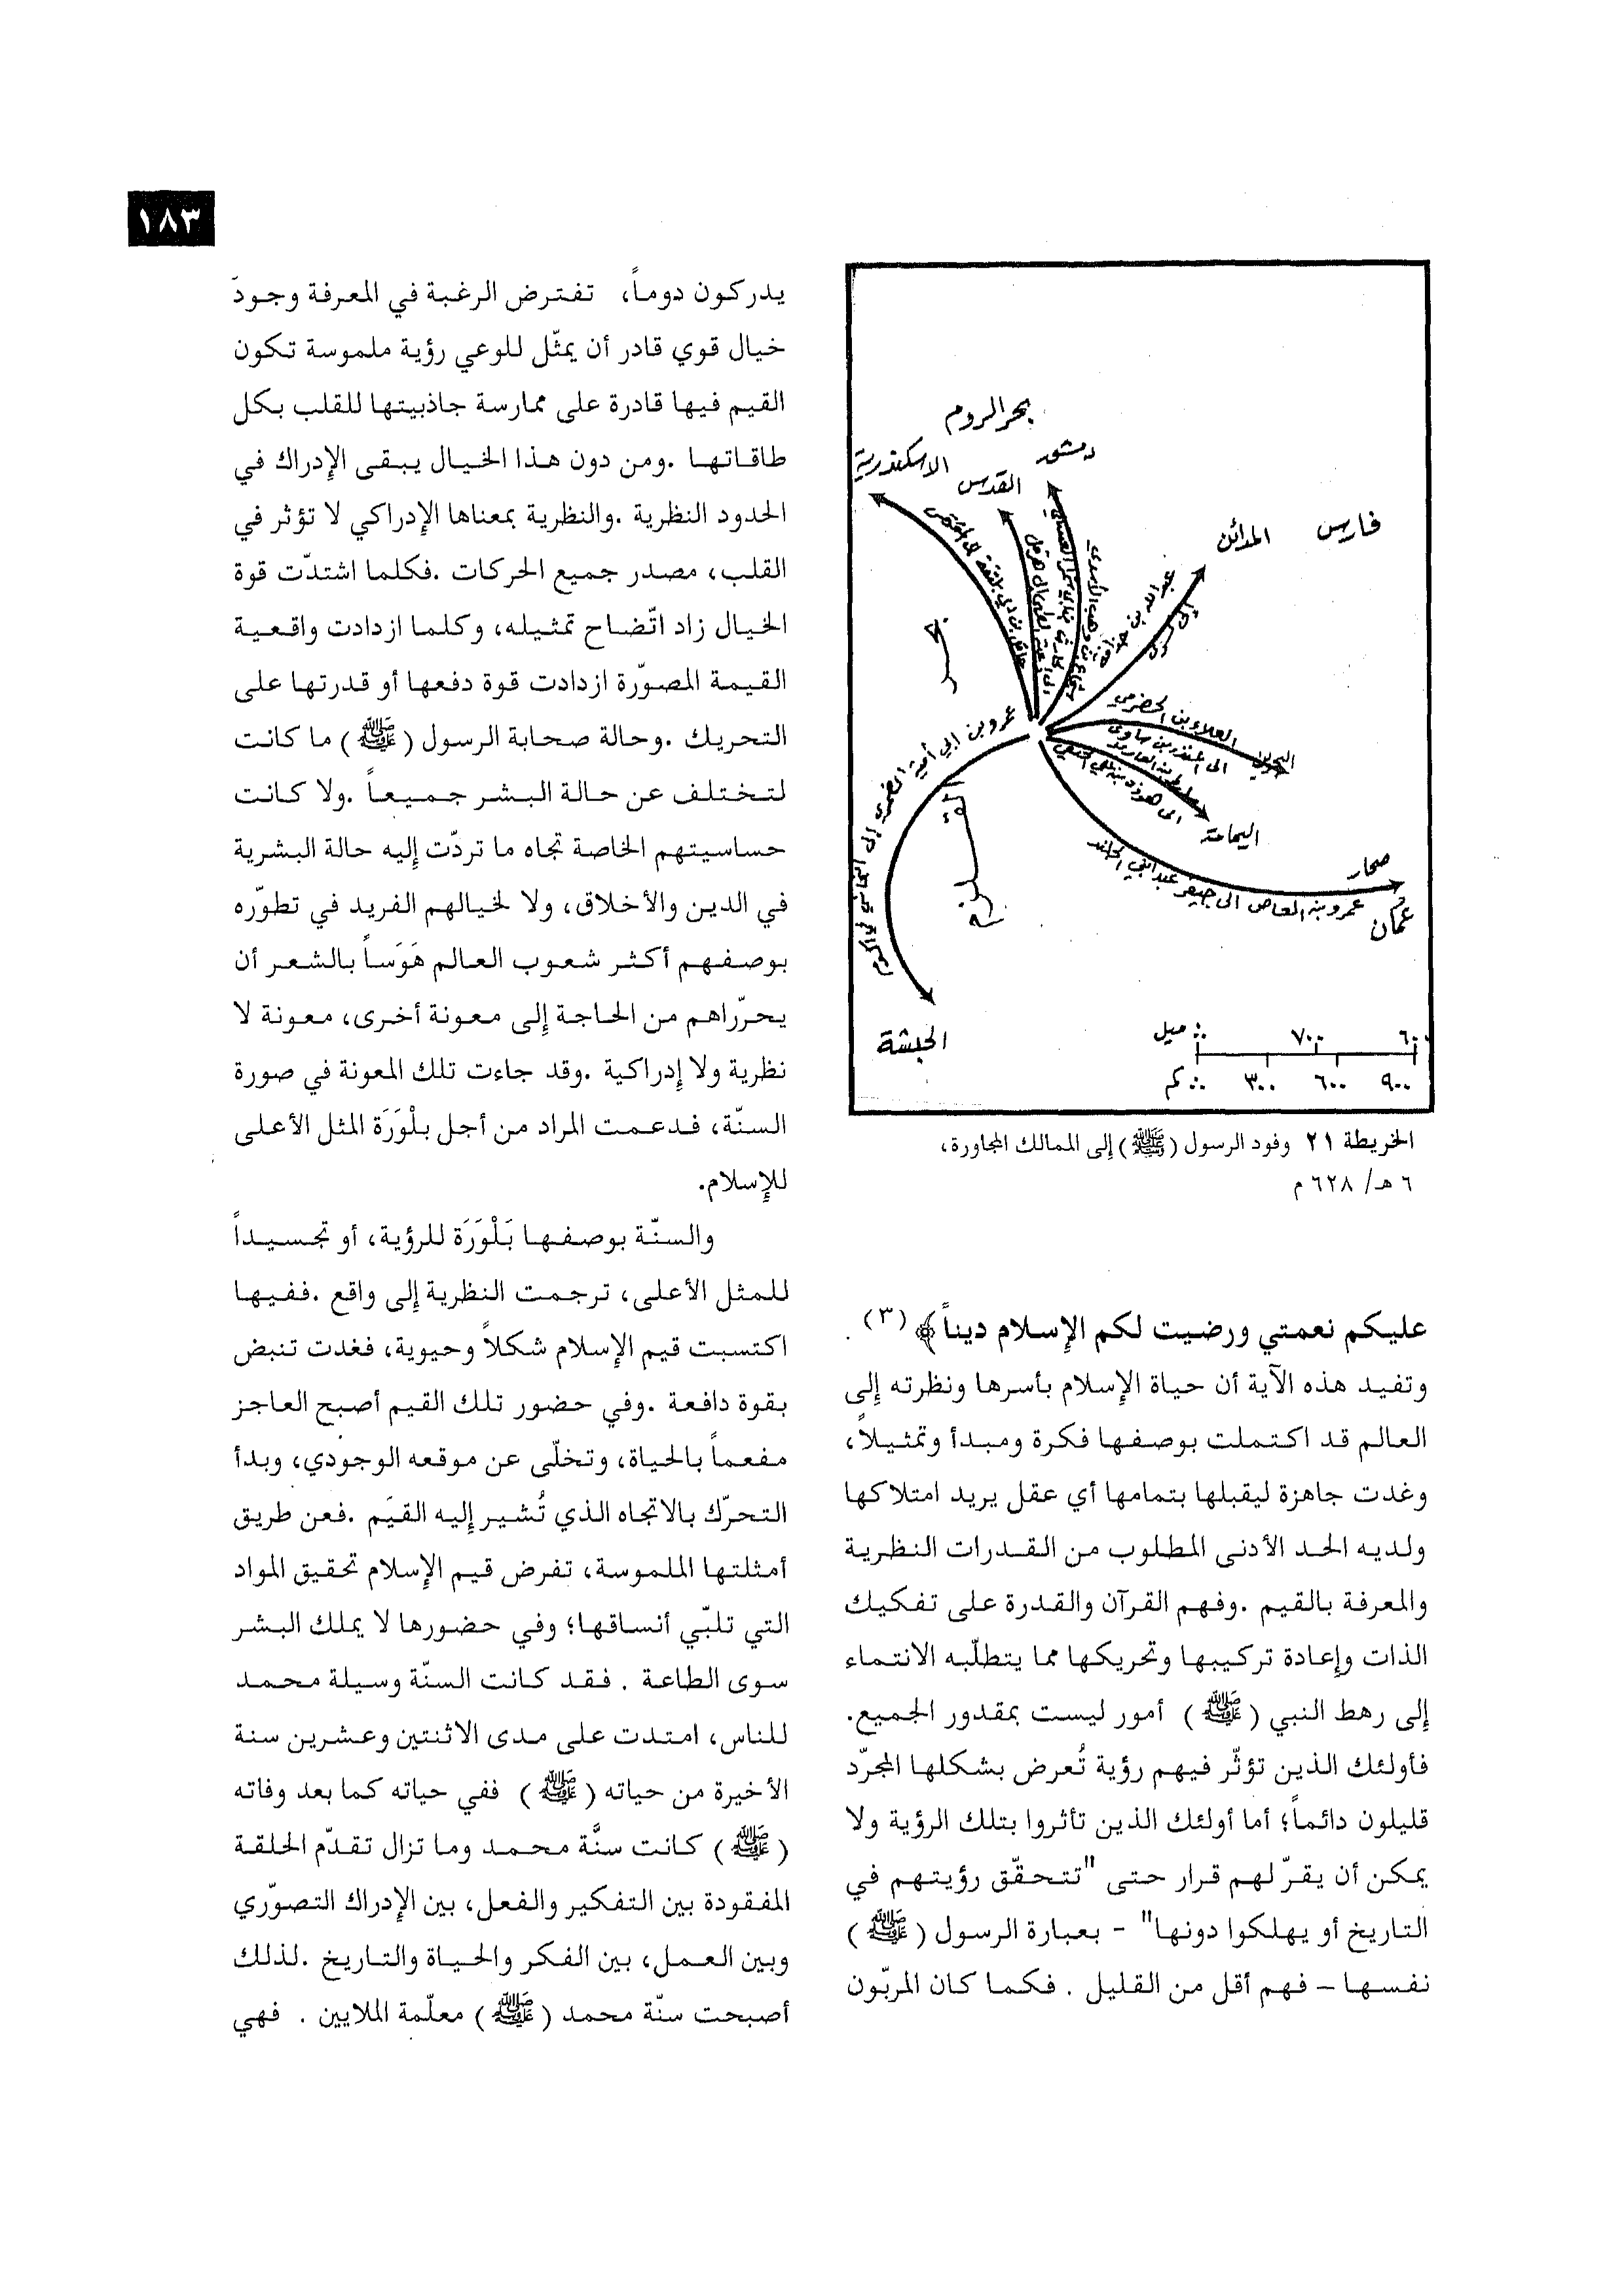 ١٨٣
بحر الروم
دمشق
القدس
الاسكندرية
فارس
المدائن
عبد الله بن
إلى كسرى
بحر
القلزم
العلاء بن الحضرمي
الى المنذر بن ساوى
البحرين
اليمامة
صحار
عمان
عمرو بن العاص الى جيفر
عمرو بن أبي أمية الضمري إلى
الحبشة
ميل
٧٠٠
٦٠٠
كم
٣٠٠
٦٠٠
٩٠٠
الخريطة ٢١ وفود الرسول (ﷺ) إلى الممالك المجاورة،
٦ هـ/ ٦٢٨ م
عليكم نعمتي ورضيت لكم الإسلام ديناً﴾ (٣) .
وتفيد هذه الآية أن حياة الإسلام بأسرها ونظرته إلى
العالم قد اكتملت بوصفها فكرة ومبدأ وتمثيلاً،
وغدت جاهزة ليقبلها بتمامها أي عقل يريد امتلاكها
ولديه الحد الأدنى المطلوب من القدرات النظرية
والمعرفة بالقيم .وفهم القرآن والقدرة على تفكيك
الذات وإعادة تركيبها وتحريكها مما يتطلّبه الانتماء
إلى رهط النبي (ﷺ) أمور ليست بمقدور الجميع.
فأولئك الذين تؤثّر فيهم رؤية تُعرض بشكلها المجرّد
قليلون دائماً؛ أما أولئك الذين تأثروا بتلك الرؤية ولا
يمكن أن يقرّ لهم قرار حتى "تتحقّق رؤيتهم في
التاريخ أو يهلكوا دونها" - بعبارة الرسول (ﷺ)
نفسها – فهم أقل من القليل . فكما كان المربّون
يدركون دوماً، تفترض الرغبة في المعرفة وجودَ
خيال قوي قادر أن يمثّل للوعي رؤية ملموسة تكون
القيم فيها قادرة على ممارسة جاذبيتها للقلب بكل
طاقاتها .ومن دون هذا الخيال يبقى الإدراك في
الحدود النظرية .والنظرية بمعناها الإدراكي لا تؤثر في
القلب، مصدر جميع الحركات .فكلما اشتدّت قوة
الخيال زاد اتّضاح تمثيله، وكلما ازدادت واقعية
القيمة المصوّرة ازدادت قوة دفعها أو قدرتها على
التحريك .وحالة صحابة الرسول (ﷺ) ما كانت
لتختلف عن حالة البشر جميعاً .ولا كانت
حساسيتهم الخاصة تجاه ما تردّت إليه حالة البشرية
في الدين والأخلاق، ولا لخيالهم الفريد في تطوّره
بوصفهم أكثر شعوب العالم هَوَساً بالشعر أن
يحرّراهم من الحاجة إلى معونة أخرى، معونة لا
نظرية ولا إدراكية .وقد جاءت تلك المعونة في صورة
السنّة، فدعمت المراد من أجل بلْوَرَة المثل الأعلى
للإسلام.
والسنّة بوصفها بَلْوَرَة للرؤية، أو تجسيداً
للمثل الأعلى، ترجمت النظرية إلى واقع .ففيها
اكتسبت قيم الإسلام شكلاً وحيوية، فغدت تنبض
بقوة دافعة .وفي حضور تلك القيم أصبح العاجز
مفعماً بالحياة، وتخلّى عن موقعه الوجودي، وبدأ
التحرّك بالاتجاه الذي تُشير إليه القيَم .فعن طريق
أمثلتها الملموسة، تفرض قيم الإسلام تحقيق المواد
التي تلبّي أنساقها؛ وفي حضورها لا يملك البشر
سوى الطاعة . فقد كانت السنّة وسيلة محمد
للناس، امتدت على مدى الاثنتين وعشرين سنة
الأخيرة من حياته (ﷺ) ففي حياته كما بعد وفاته
(ﷺ) كانت سنَّة محمد وما تزال تقدّم الحلقة
المفقودة بين التفكير والفعل، بين الإدراك التصوّري
وبين العمل، بين الفكر والحياة والتاريخ .لذلك
أصبحت سنّة محمد (ﷺ) معلّمة الملايين . فهي